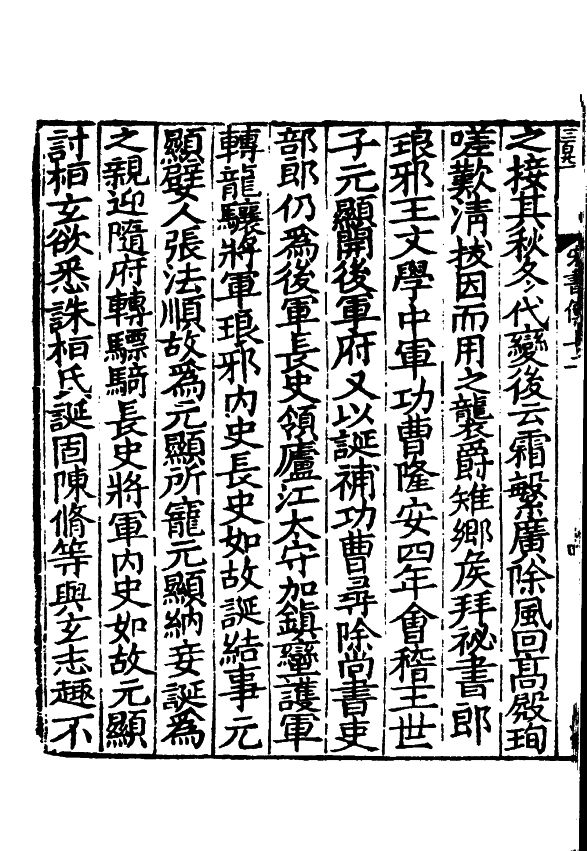 之接其秋冬代變後云霜繁廣除風回髙殿珣
嗟歎清拔因而用之襲爵雉鄉侯拜祕書郎
琅邪王文學中軍功曹隆安四年會稽王世
子元顯開後軍府又以誕補功曹尋除尚書吏
部郎仍為後軍長史領廬江太守加鎮蠻護軍
轉龍驤將軍琅邪内史長史如故誕結事元
顯嬖人張法順故為元顯所寵元顯納妾誕為
之親迎隨府轉驃騎長史將軍内史如故元顯
討桓玄欲悉誅桓氏誕固陳脩等與玄志趣不